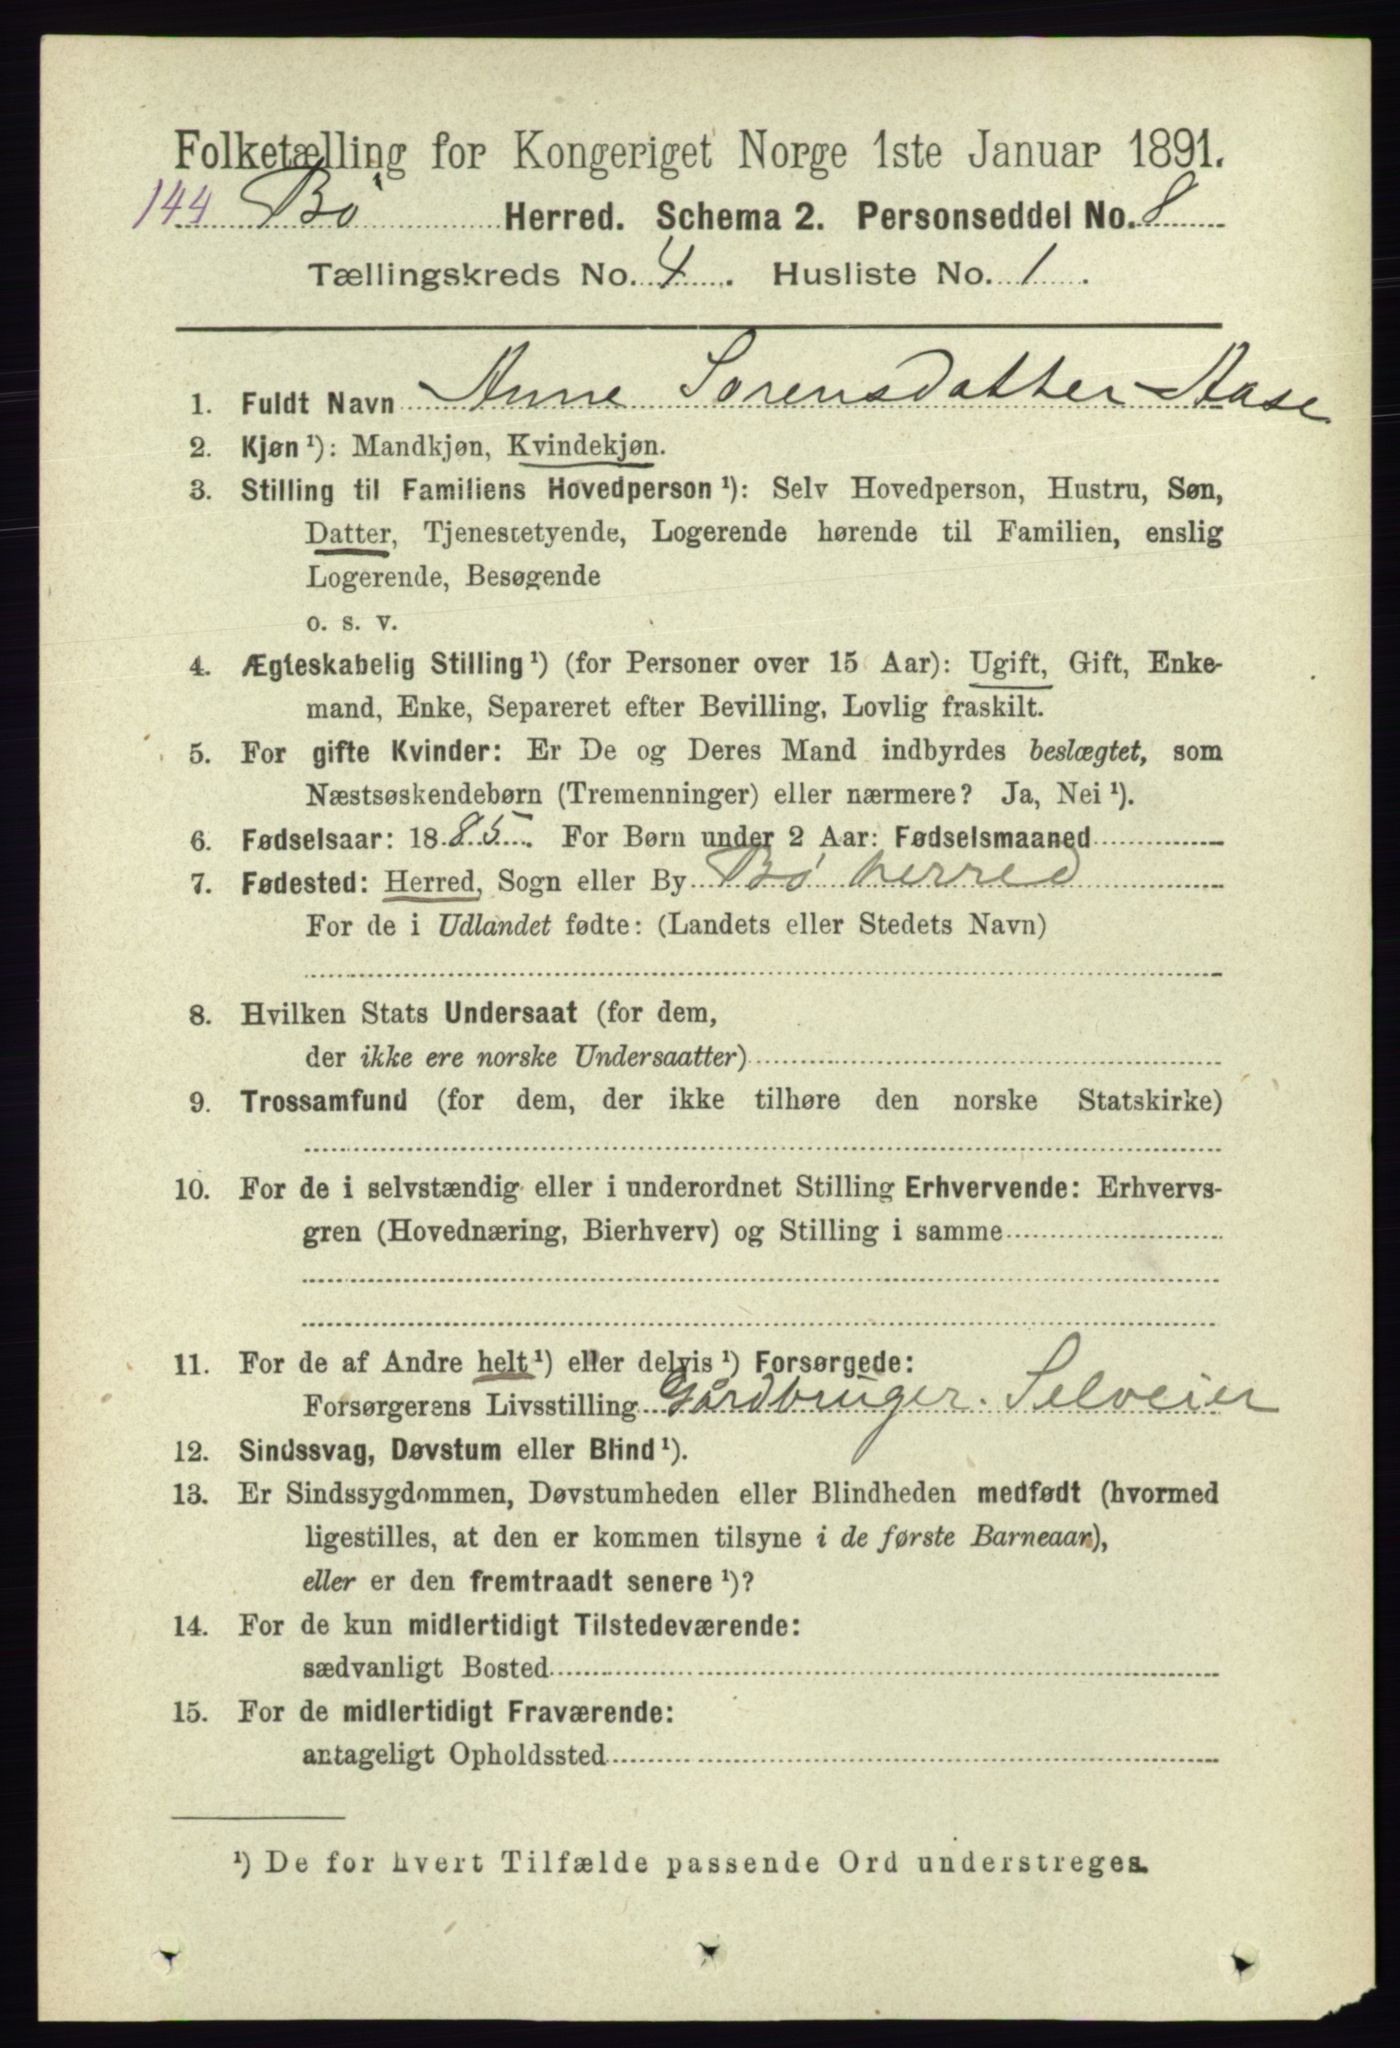 Folketælling for Kongeriget Norge 1ste Januar 1891.
144 Bø Herred. Schema 2. Personseddel No. 8
Tællingskreds No. 4. Husliste No. 1.
1. Fuldt Navn Anne Sorensdatter Aase
2. Kjøn ¹): Mandkjøn, Kvindekjøn.
3. Stilling til Familiens Hovedperson ¹): Selv Hovedperson, Hustru, Søn,
Datter, Tjenestetyende, Logerende hørende til Familien, enslig
Logerende, Besøgende
o. s. v.
4. Ægteskabelig Stilling ¹) (for Personer over 15 Aar): Ugift, Gift, Enke-
mand, Enke, Separeret efter Bevilling, Lovlig fraskilt.
5. For gifte Kvinder: Er De og Deres Mand indbyrdes beslægtet, som
Næstsøskendebørn (Tremenninger) eller nærmere? Ja, Nei ¹).
6. Fødselsaar: 1885. For Børn under 2 Aar: Fødselsmaaned
7. Fødested: Herred, Sogn eller By Bø herred
For de i Udlandet fødte: (Landets eller Stedets Navn)
8. Hvilken Stats Undersaat (for dem,
der ikke ere norske Undersaatter)
9. Trossamfund (for dem, der ikke tilhøre den norske Statskirke)
10. For de i selvstændig eller i underordnet Stilling Erhvervende: Erhvervs-
gren (Hovednæring, Bierhverv) og Stilling i samme
11. For de af Andre helt ¹) eller delvis ¹) Forsørgede:
Forsørgerens Livsstilling Gårdbruger. Selveier
12. Sindssvag, Døvstum eller Blind ¹).
13. Er Sindssygdommen, Døvstumheden eller Blindheden medfødt (hvormed
ligestilles, at den er kommen tilsyne i de første Barneaar),
eller er den fremtraadt senere ¹)?
14. For de kun midlertidigt Tilstedeværende:
sædvanligt Bosted
15. For de midlertidigt Fraværende:
antageligt Opholdssted
¹) De for hvert Tilfælde passende Ord understreges.